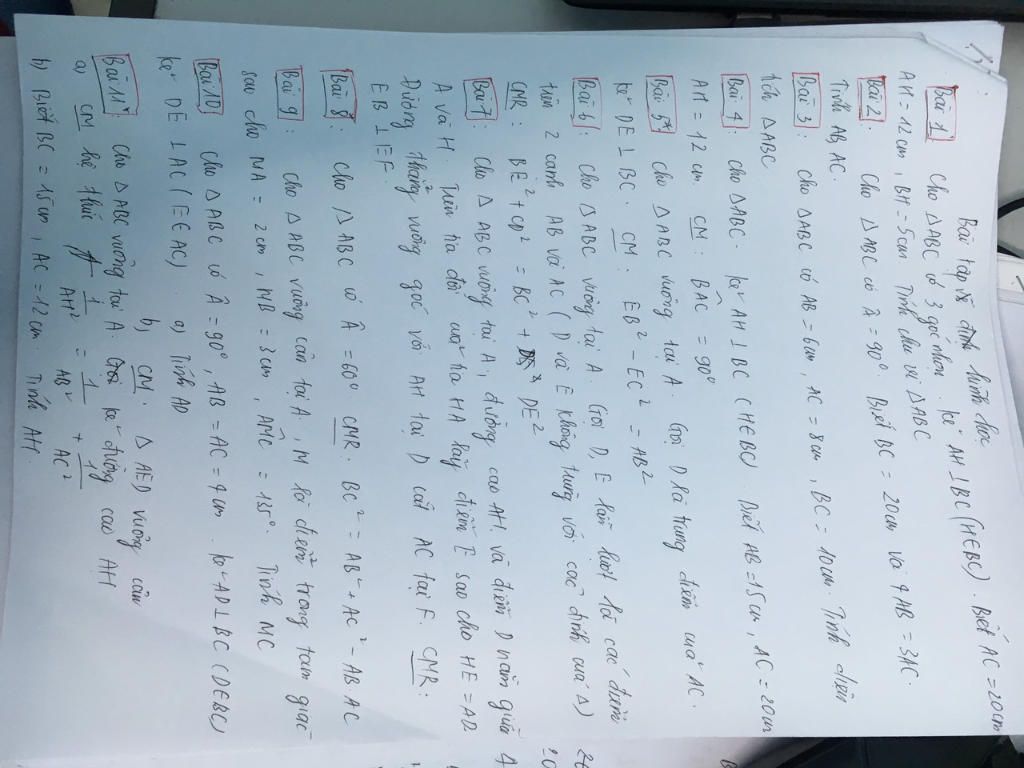 Bài tập về định hình học
Bài 1 Cho ΔABC có 3 góc nhọn. Kẻ AH ⊥ BC (H∈BC). Biết AC = 20cm
AH = 12cm, BH = 5cm. Tính chu vi ΔABC
Bài 2: Cho ΔABC có Â = 90°. Biết BC = 20cm và 4AB = 3AC
Tính AB, AC.
Bài 3: Cho ΔABC có AB = 6cm, AC = 8cm, BC = 10cm. Tính diện
tích ΔABC
Bài 4: Cho ΔABC. Kẻ AH ⊥ BC (H∈BC) Biết AB = 15cm, AC = 20cm
AH = 12cm. CM: BÂC = 90°
Bài 5*: Cho ΔABC vuông tại A. Gọi D là trung điểm của AC.
Kẻ DE ⊥ BC. CM: EB² - EC² = AB²
Bài 6: Cho ΔABC vuông tại A. Gọi D, E lần lượt là các điểm
trên 2 cạnh AB và AC (D và E không trùng với các đỉnh của Δ)
CMR: BE² + CD² = BC² + DE²
Bài 7: Cho ΔABC vuông tại A, đường cao AH và điểm D nằm giữa
A và H. Trên tia đối của tia HA lấy điểm E sao cho HE = AD.
Đường thẳng vuông góc với AH tại D cắt AC tại F. CMR:
EB ⊥ EF.
Bài 8: Cho ΔABC có Â = 60°. CMR. BC² = AB² + AC² - AB.AC
Bài 9: Cho ΔABC vuông cân tại A, M là điểm trong tam giác
sao cho MA = 2cm, MB = 3cm, AMC = 135°. Tính MC
Bài 10 Cho ΔABC có Â = 90°, AB = AC = 4cm. Kẻ AD ⊥ BC (D∈BC)
Kẻ DE ⊥ AC (E∈AC). a) Tính AD
b) CM. ΔAED vuông cân
Bài 11*: Cho ΔABC vuông tại A. kẻ đường cao AH
a) CM hệ thức 1/AH² = 1/AB² + 1/AC²
b) Biết BC = 15cm, AC = 12cm. Tính AH.